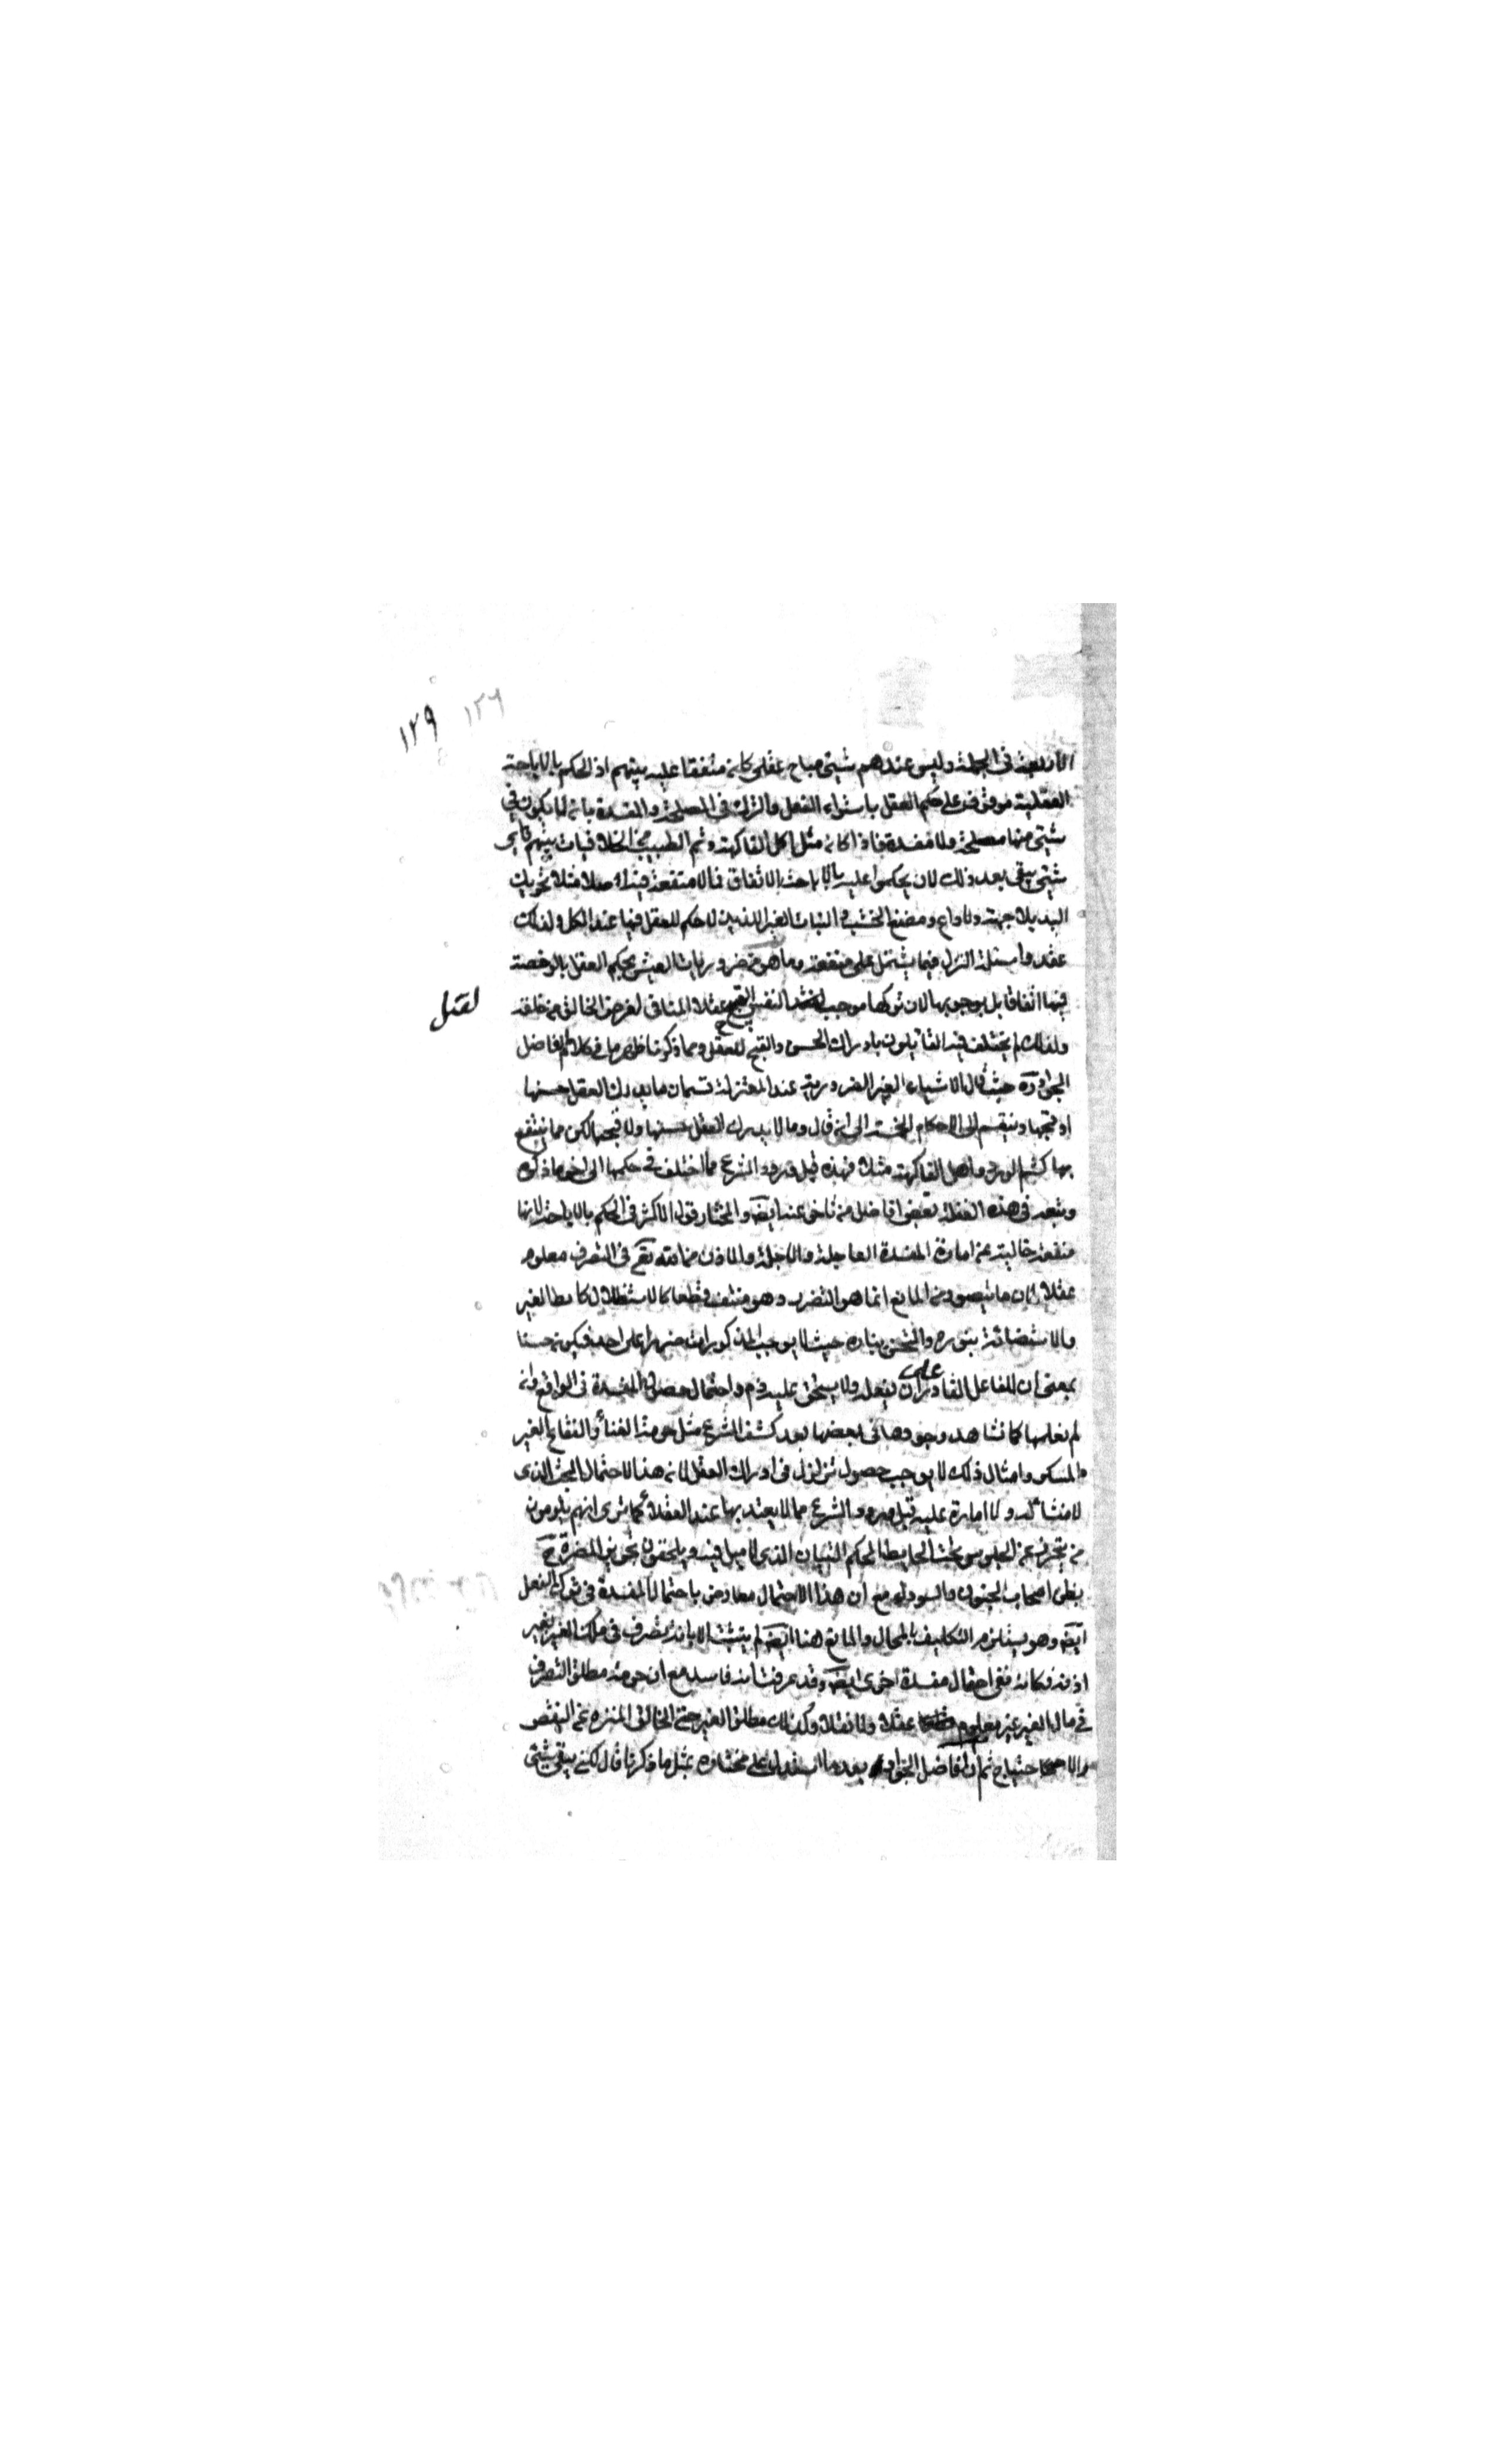 ١٢٦
١٢٩
الاربعة في الجملة وليس عندهم شيئ مباح عقلي كان متفقا عليه بينهم اذ الحكم بالاباحة
العقلية موقوف على حكم العقل باستواء الفعل والترك في المصلحة والمفسدة بان لا يكون في
شيئ منهما مصلحة ولا مفسدة فاذا كان مثل اكل الفاكهة وشم الطيب من الخلافيات بينهم فاي
شيئ يبقى بعد ذلك لان يحكموا عليه بالاباحة بالاتفاق فما لا منفعة فيه اصلا مثلا تحريك
اليد بلا جهة ولا داع ومضغ الخشب والنبات الغير اللذيذ لا حكم للعقل فيها عند الكل ولذلك
عقدوا مسئلة النزل فيما يشتمل على منفعة وما هو من ضروريات العيش يحكم العقل بالرخصة
فيها اتفاقا بل بوجوبها لان تركها موجب النفس القبيح عقلا المنافي لغرض الخالق من خلقه
لقتل
ولذلك لم يختلف فيه القائلون بادراك الحسن والقبح للعقل ومما ذكرنا ظهر ما في كلام الفاضل
الجواد ره حيث قال الاشياء الغير الضرورية عند المعتزلة قسمان ما يدرك العقل حسنها
او قبحها وينقسم الى الاحكام الخمسة الى ان قال وما لا يدرك العقل حسنها ولا قبحها لكن مما ينتفع
بها كشم الورد واكل الفاكهة مثلا فهذه قبل ورود الشرع مما اختلف في حكمها الى اخر ما ذكره
وتبعه في هذه الغفلة بعض افاضل من تاخر عنه ايضا والمختار قول الاكثر في الحكم بالاباحة لانها
منفعة خالية عن امارة المفسدة العاجلة والاجلة والاذن من الله تع في التصرف معلوم
عقلا لان ما يتصور من المانع انما هو التضرر وهو منتف قطعا كالاستظلال بحائط الغير
والاستضائة بنوره والتسخن بناره حيث لا يوجب المذكورات ضررا على احد فيكون حسنا
بمعنى ان للفاعل القادر على ان يفعله ولا يستحق عليه ذم واحتمال حصول المفسدة في الواقع وان
لم نعلمها كما نشاهد وجودها في بعضها بعد كشف الشرع مثل حرمة الغناء والفقاع الغير
المسكر وامثال ذلك لا يوجب حصول تزلزل في ادراك العقل لان هذا الاحتمال البحت الذي
لا منشأ له ولا امارة عليه قبل ورود الشرع مما لا يعتد بها عند العقلاء كما ترى انهم يلومون
من يتحرز عن الجلوس تحت الحايط المحكم البنيان الذي لا ميل فيه ويلحقون تجويز المضرة ح
بظن اصحاب الجنون والسوداء مع ان هذا الاحتمال معارض باحتمال المفسدة في ترك الفعل
ايضا وهو يستلزم التكليف بالمحال والمانع هنا ايضا لم يتشبث الا بانه تصرف في ملك الغير بغير
اذنه فكانه نفى احتمال مفسدة اخرى ايضا وقد عرفت انه فاسد مع ان حرمة مطلق التصرف
في مال الغير غير معلوم عقلا ولا نقلا وكذلك مطلق الغير حتى الخالق المنزه عن النقص
والاحتياج ثم ان الفاضل الجواد بعد ما استدل على مختاره بمثل ما ذكرنا قال لكن يبقى شيئ